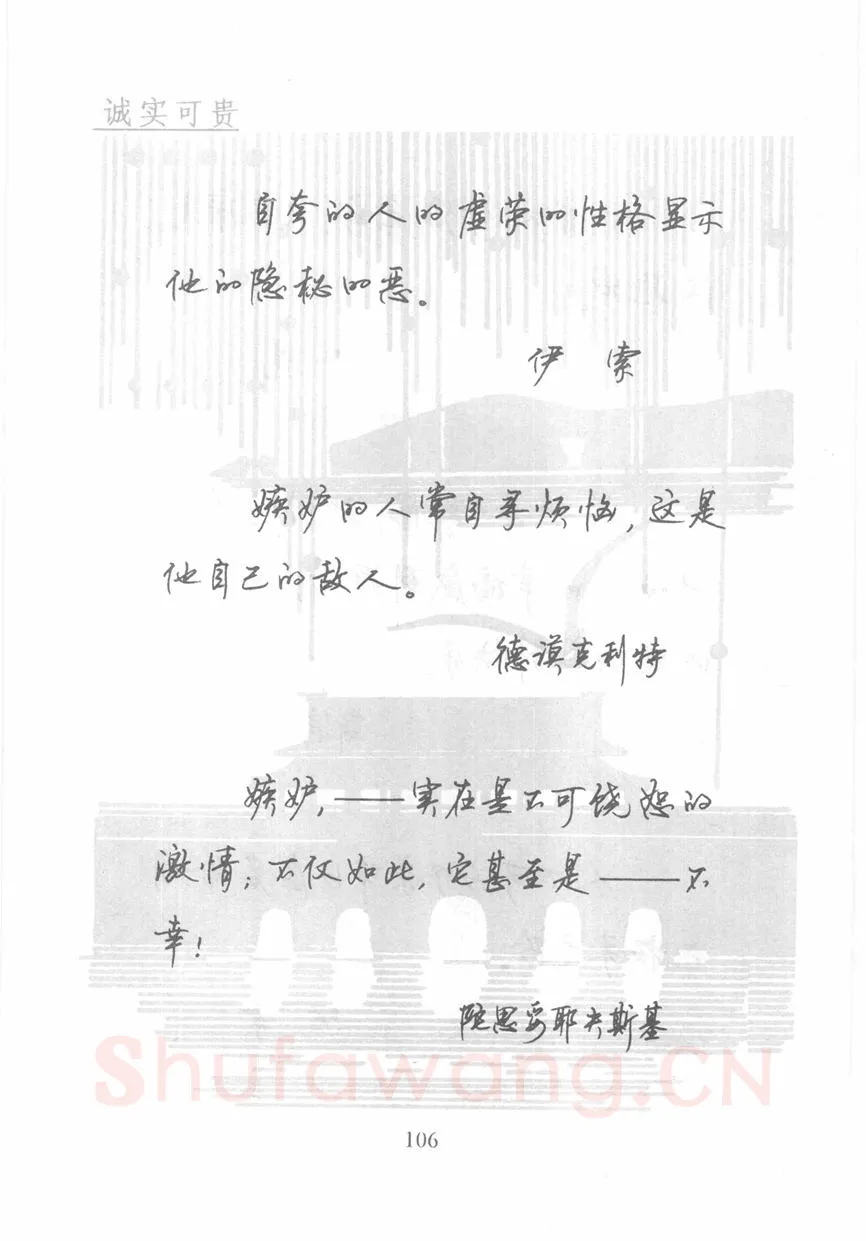 诚实可贵
自夸的人的虚荣的性格显示
他的隐秘的恶。
伊 索
嫉妒的人常自寻烦恼,这是
他自己的敌人。
德谟克利特
嫉妒,——实在是不可饶恕的
激情;不仅如此,它甚至是——不
幸!
陀思妥耶夫斯基
Shufawang.CN
106